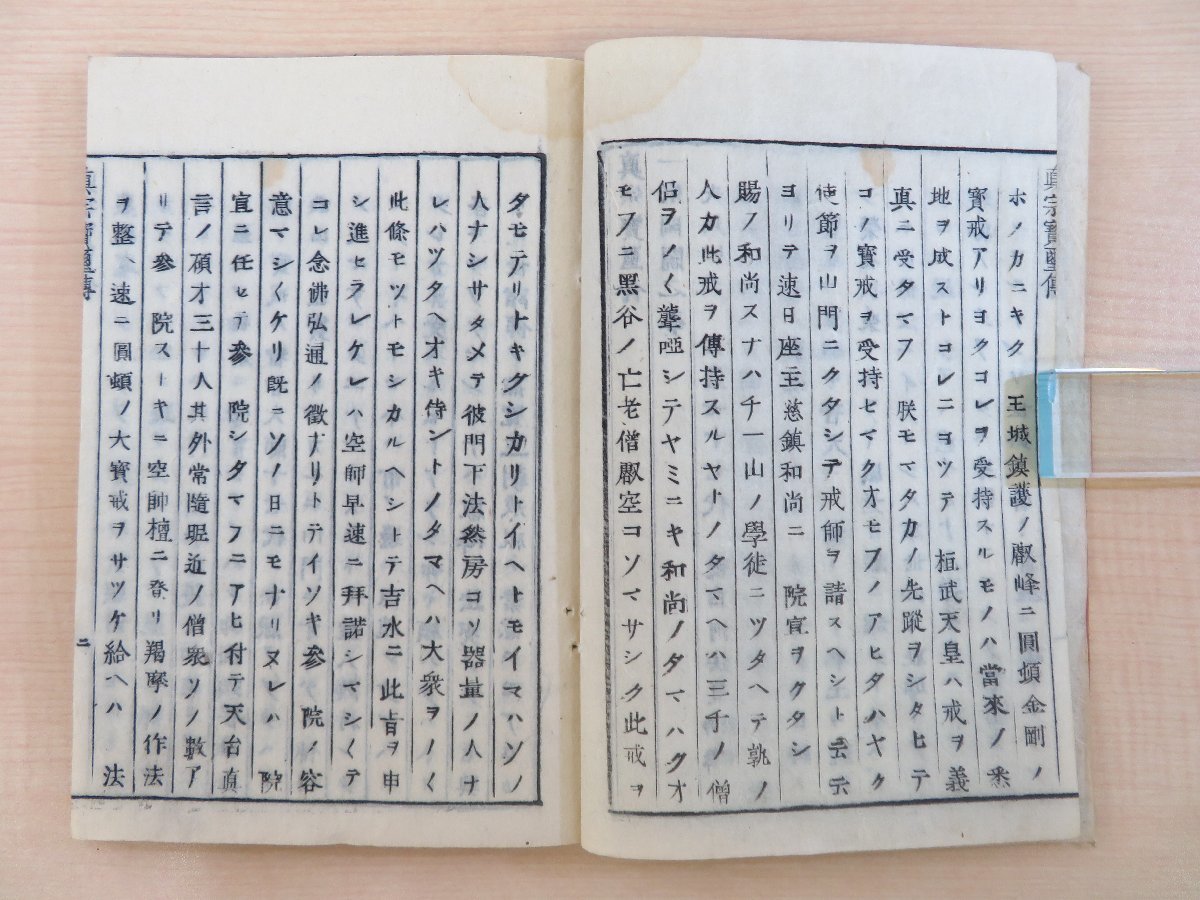 眞宗寶璽傳
ホノカニキク 王城鎮護ノ叡峰ニ圓頓金剛ノ
寳戒アリヨクコレヲ受持スルモノハ當來ノ悉
地ヲ成ストコレニヨツテ 桓武天皇ハ戒ヲ義
眞ニ受タマフ 朕モマタカノ先蹤ヲシタヒテ
コノ寳戒ヲ受持セマクオモフノアヒタハヤク
使節ヲ山門ニクタシテ戒師ヲ請スヘシト云云
ヨリテ速日座主慈鎮和尚ニ 院宣ヲクタシ
賜ノ和尚スナハチ一山ノ學徒ニツタヘテ孰ノ
人カ此戒ヲ傳持スルヤトノタマヘハ三千ノ僧
侶ヲノ〱聾啞シテヤミニキ和尚ノタマハクオ
モフニ黒谷ノ亡老僧叡空コソマサシク此戒ヲ
タモテリトキクシカリトイヘトモイマハソノ
人ナシサタメテ彼門下法然房コソ器量ノ人ナ
レハツタヘオキ侍ントノタマヘハ大衆ヲノ〱
此條モツトモシカルヘシトテ吉水ニ此旨ヲ申
シ進セラレケレハ空師早速ニ拜諾シマシ〱テ
コレ念佛弘通ノ徴ナリトテイソキ参 院ノ容
意マシ〱ケリ既ニソノ日ニモナリヌレハ 院
宣ニ任セテ参 院シタマフニアヒ付テ天台眞
言ノ碩才三十人其外常隨昵近ノ僧衆ソノ數ア
リテ参 院ス トキニ空師壇ニ登リ羯摩ノ作法
ヲ整ヘ速ニ圓頓ノ大寳戒ヲサツケ給ヘハ 法
眞宗寶璽傳
二